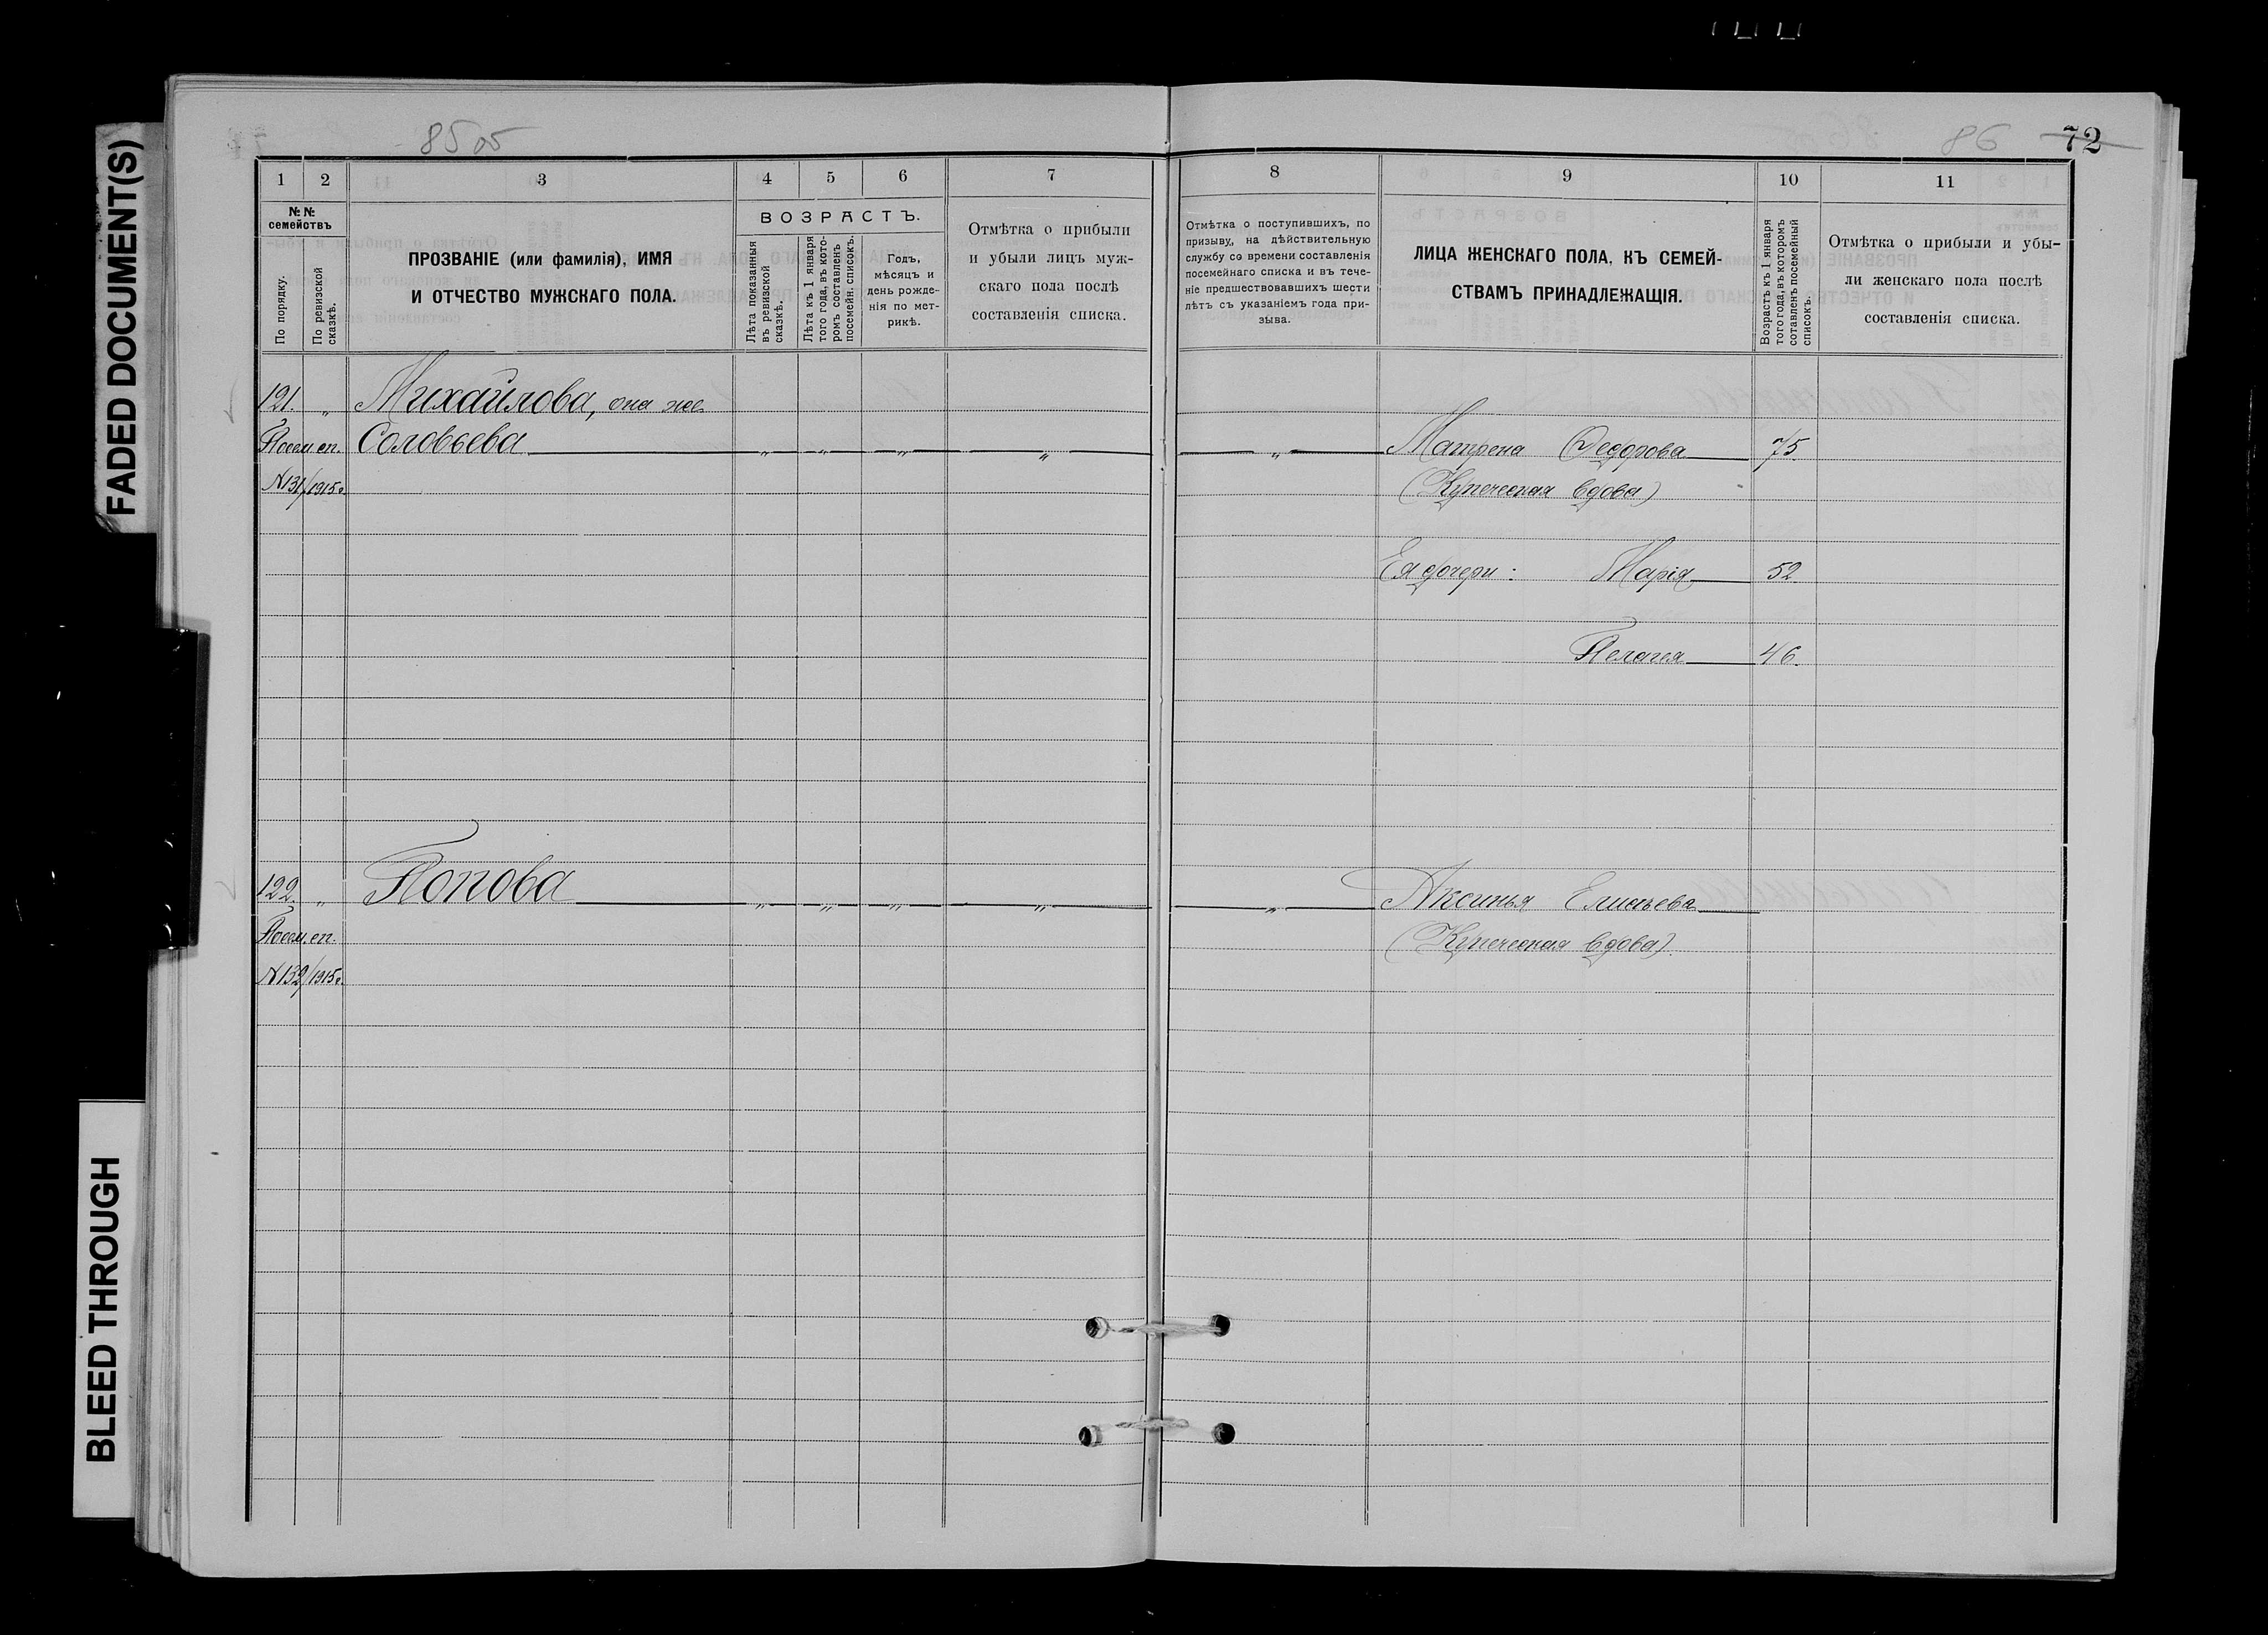 FADED DOCUMENT(S)
BLEED THROUGH
85 об
86
72
1 2 3 4 5 6 7
№№ семействъ
По порядку.
По ревизской сказкѣ.
ПРОЗВАНІЕ (или фамилія), ИМЯ
И ОТЧЕСТВО МУЖСКАГО ПОЛА.
ВОЗРАСТЪ.
Лѣта показанныя въ ревизской сказкѣ.
Лѣта къ 1 января того года, въ кото-ромъ составленъ посемейн. списокъ.
Годъ,
мѣсяцъ и
день рожде-
нія по мет-
рикѣ.
Отмѣтка о прибыли
и убыли лицъ муж-
скаго пола послѣ
составленія списка.
8 9 10 11
Отмѣтка о поступившихъ, по
призыву, на дѣйствительную
службу со времени составленія
посемейнаго списка и въ тече-
ніе предшествовавшихъ шести
лѣтъ съ указаніемъ года при-
зыва.
ЛИЦА ЖЕНСКАГО ПОЛА, КЪ СЕМЕЙ-
СТВАМЪ ПРИНАДЛЕЖАЩІЯ.
Возрастъ къ 1 января
того года, въ которомъ
сотавленъ посемейный
списокъ.
Отмѣтка о прибыли и убы-
ли женскаго пола послѣ
составленія списка.
121. „ Михайлова, она же
Посем. сп. Соловьева „ „ „ „ „ Матрена Федорова 75
№131/1915г. (Купеческая вдова)
Ея дочери: Марія 52.
Пелагея 46.
122. „ Попова „ „ „ „ „ Аксинья Елисѣева
Посем. сп. (Купеческая вдова).
№132/1915г.